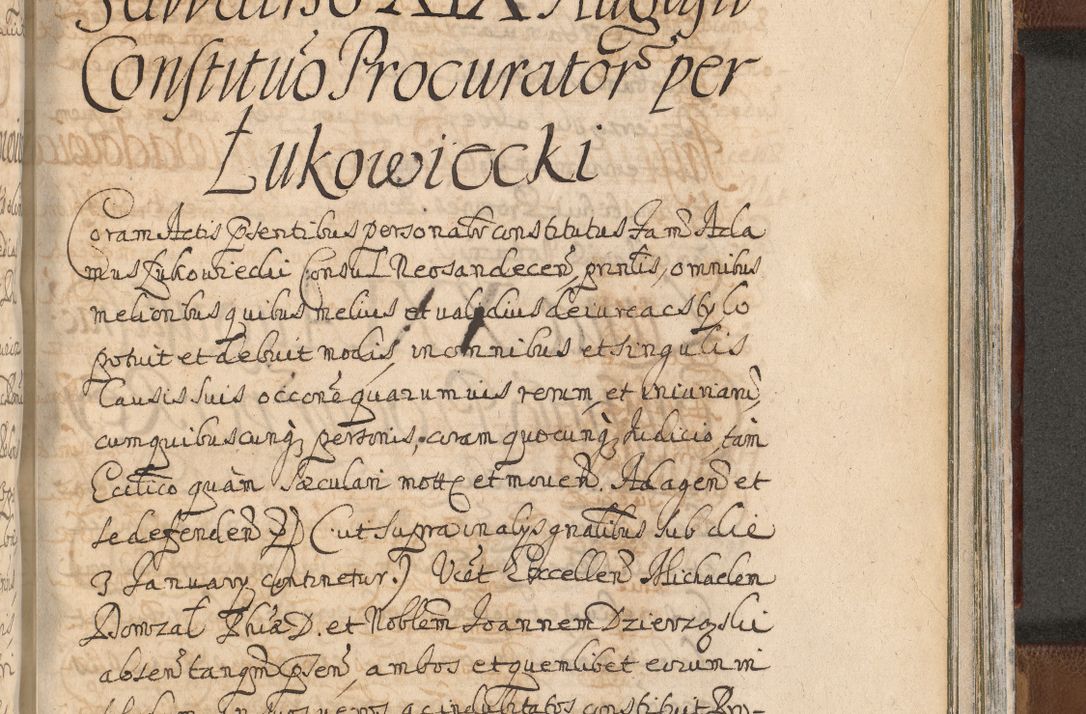 Sabbatho XIX Augusti
Constituõ Procuratorẽ per
Łukowiecki
Coram Actis Pṡentibus personalr̃ constitutus Fam̃ Ada
mus Łukowiecki Consul Neosandecen̄, prñtis, omnibus
melioribus quibus melius et validius de iure ac stylo
potuit et debuit modis, in omnibus et singulis
Causis suis occone quarumvis rerum, et iniuriarũ,
cum quibuscunq; personis, coram quocunq; Iudicio, tam
Ecclico quàm Sæculari mott̃ et mouen̄. Ad agen̄ et
se defenden̄ (ut supra in alys gnalibus sub die
3 January continetur.) Ucet Excellen̄ Michaelem
Domzał Phiæ D. et Noblem Joannem Dzierzgski
absen̄ tanqm̃ psen̄, ambos et quemlibet eorum in